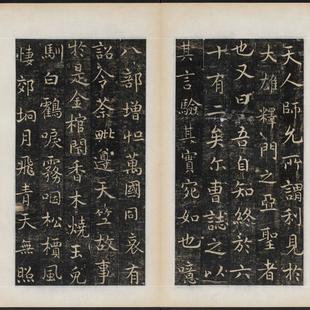 天人師允所謂利見於
大雄釋門之亞聖者
也又曰吾自知終於六
十有二矣尔曹誌之以
其言驗其實宛如也噫
八部增怛萬國同哀有
詔令荼毗遵天竺故事
於是金棺閟香木燒玉兔
馴白鶴唳霧咽松檟風
悽郊坰月飛青天無照